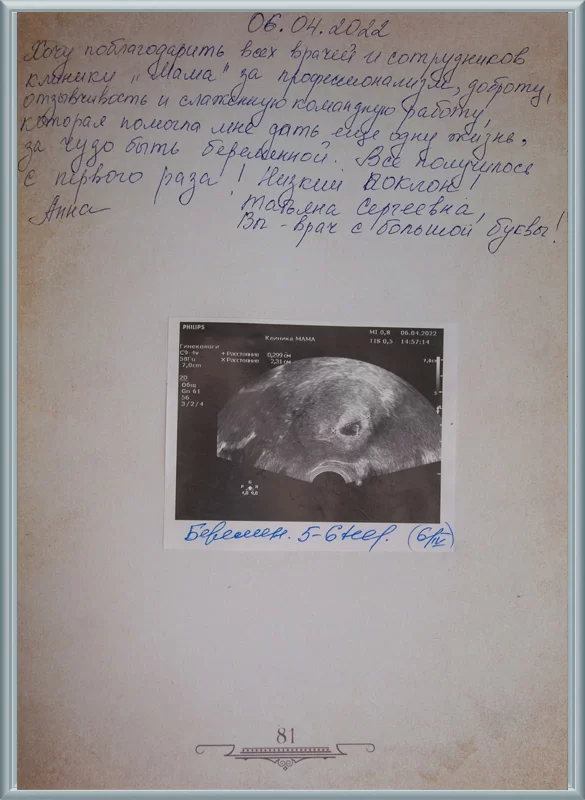 06.04.2022
Хочу поблагодарить всех врачей и сотрудников
клиники "Мама" за профессионализм, доброту,
отзывчивость и слаженную командную работу,
которая помогла мне дать еще одну жизнь,
за чудо быть беременной. Все получилось
с первого раза! Низкий поклон!
Анна Татьяна Сергеевна,
Вы - врач с большой буквы!
PHILIPS
Клиника МАМА
MI 0,8 06.04.2022
TIS 0,5 14:57:14
Гинекологи
C9-4v
58Гц
7,0cm
+ Расстояние 0,299 см
× Расстояние 2,31 см
2D
Общ
Gn 61
56
3/2/4
Беремен. 5-6 нед. (6/IV)
81